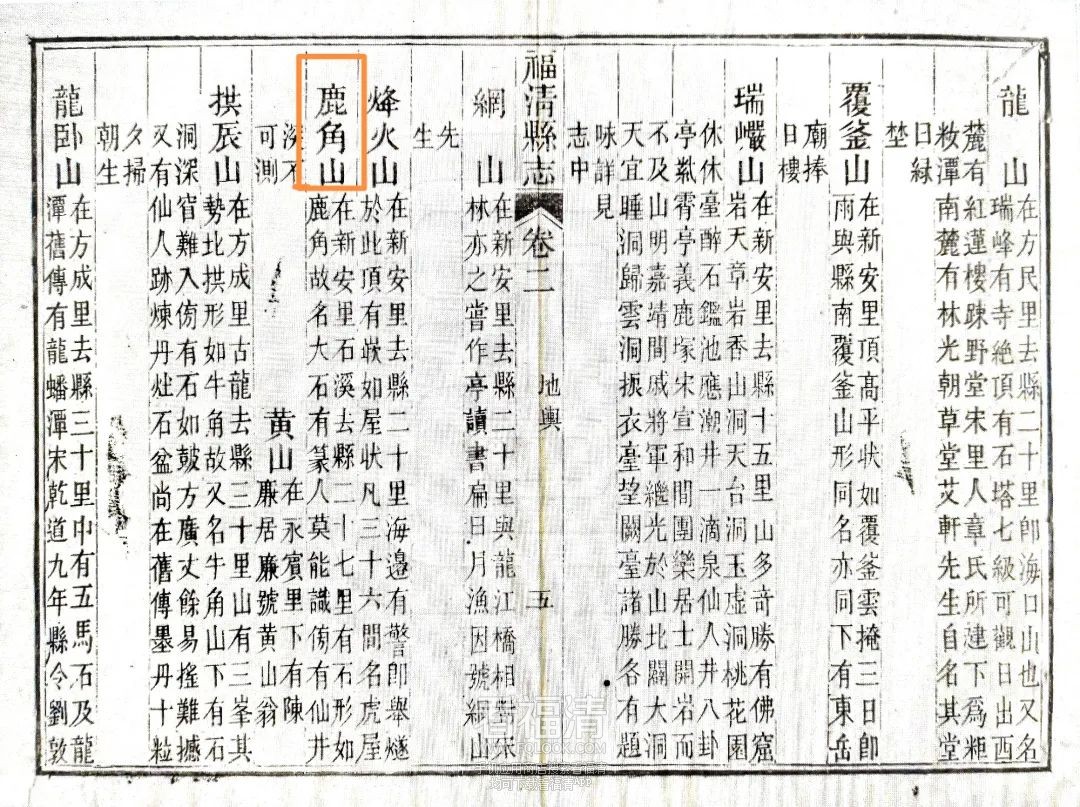 龍山
在方民里去縣二十里即海口山也又名
瑞峰有寺絶頂有石塔七級可觀日出西
麓有紅蓮樓踈野堂宋里人章氏所建下爲粔
敉潭南麓有林光朝草堂艾軒先生自名其堂
曰緑
埜
覆釜山
在新安里頂高平状如覆釜雲掩三日即
雨與縣南覆釜山形同名亦同下有東岳
廟捧
日樓
瑞巖山
在新安里去縣十五里山多奇勝有佛窟
岩天章岩香山洞天台洞玉虚洞桃花園
休休臺醉石鑑池應潮井一滴泉仙人井八卦
亭歗霄亭義鹿塚宋宣和間團欒居士開岩而
不及山明嘉靖間戚將軍繼光於山北闢大洞
天宜睡洞歸雲洞振衣臺望闕臺諸勝各有題
味詳見
志中
福清縣志 卷二 地輿 五
網山
在新安里去縣二十里與龍江橋相對宋
林亦之嘗作亭讀書扁曰月漁因號網山
先
生
烽火山
在新安里去縣二十里海邉有警即舉燧
於此頂有嵌如屋状凡三十六間名虎屋
鹿角山
在新安里石溪去縣二十七里有石形如
鹿角故名大石有篆人莫能識傍有仙井
深不
可測
黄山
在永賓里下有陳
廉居廉號黄山翁
拱辰山
在方成里古龍去縣三十里山有三峯其
勢北拱形如牛角故又名牛角山下有石
洞深窅難入傍有石如皷方廣丈餘易揺難撼
又有仙人跡煉丹灶石盆尚在舊傳墨丹十粒
夕掃
朝生
龍卧山
在方成里去縣三十里中有五馬石及龍
潭舊傳有龍蟠潭宋乾道九年縣令劉敦
福清
FQLOOK.COM